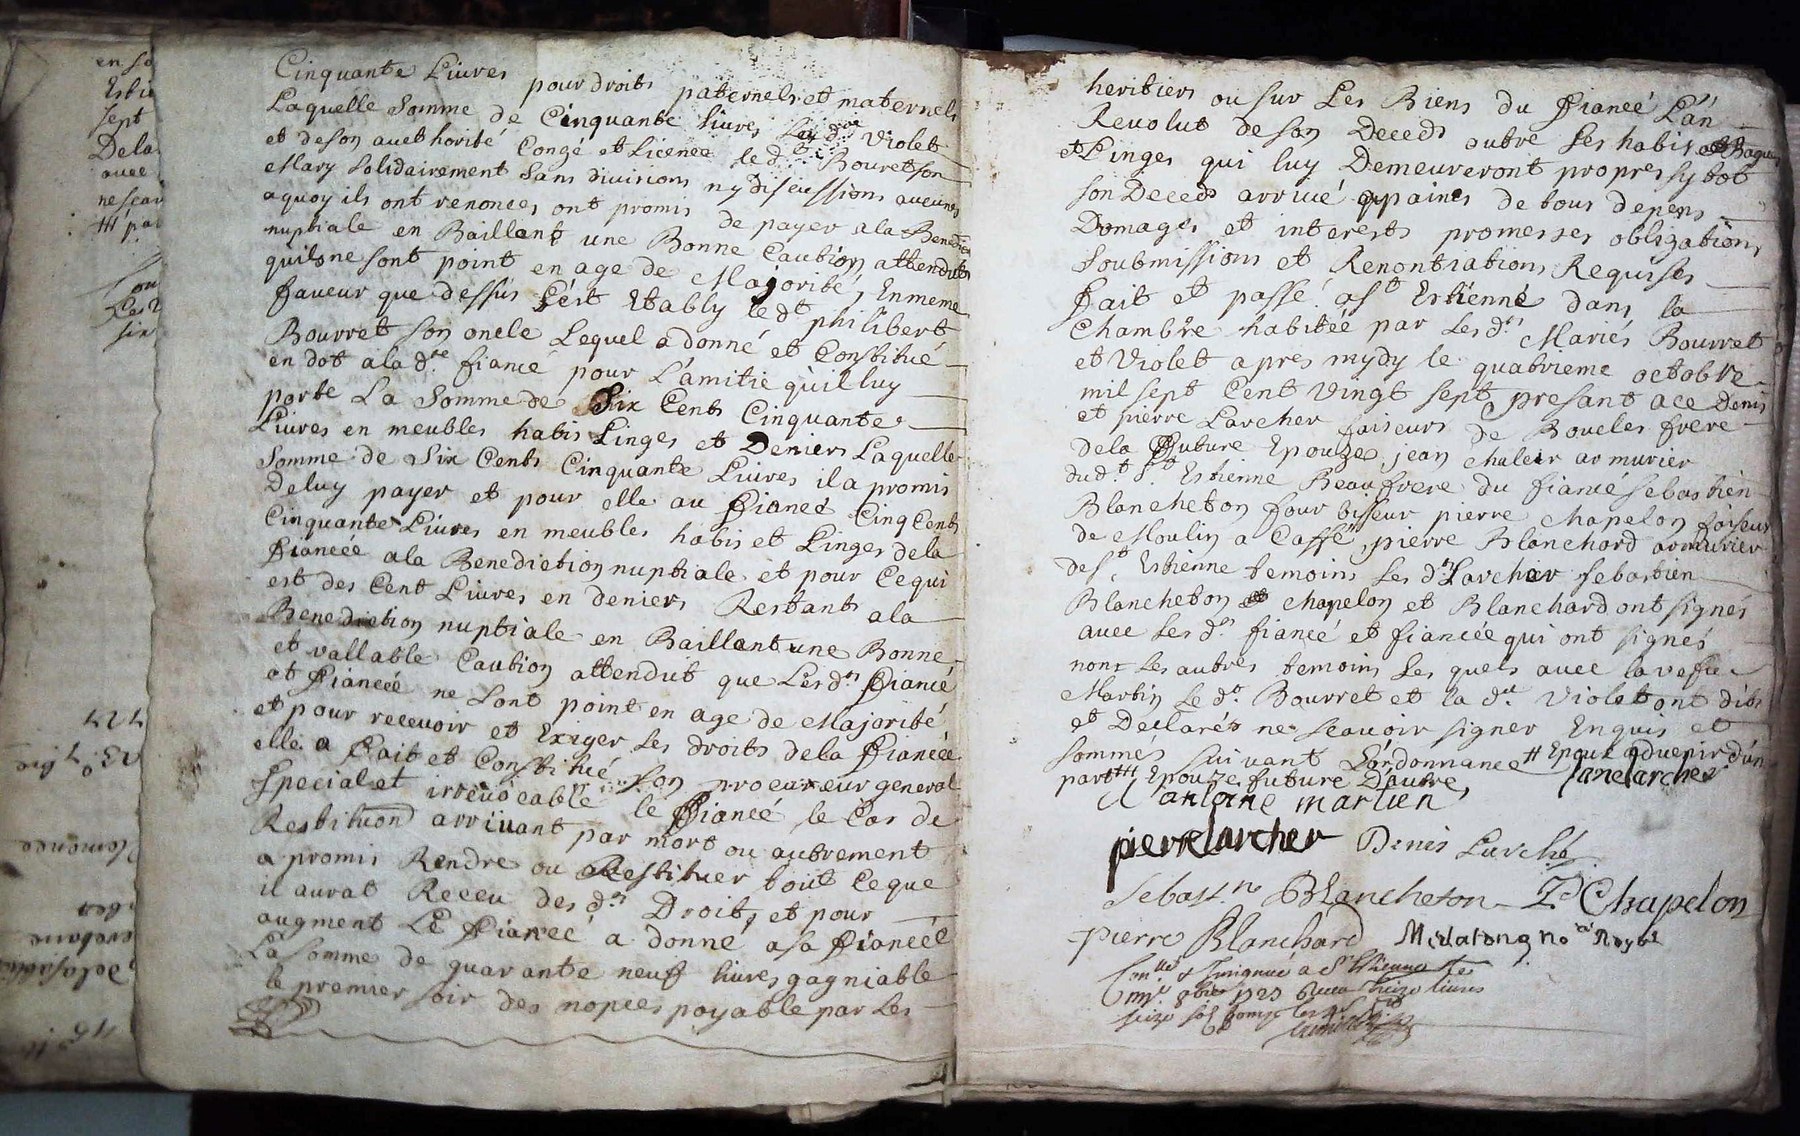 en so
Estie
sept
Dela
avec
ne scav
par
ou
Les
six
Cinquante Livres pour droits paternels et maternels
Laquelle Somme de Cinquante livres Lad.e Violet
et de son aucthorité Congé et Licence led.t Bourret son
Mary Solidairement Sans divisions ny Discussions aucunes
aquoy ils ont renoncés ont promis de payer ala Benedion
nuptiale en Baillent une Bonne Caution attenduts
quils ne sont point en age de Majorité, En meme
faveur que dessus s'ést Etably led.t philibert
Bourret son oncle Lequel a donné et Constitué
en dot ala d.te fiancé pour L'amitie qu'il luy
porte La Somme de Six Cents Cinquante
Livres en meubles habis Linges et Deniers Laquelle
Somme de Six Cents Cinquante Livres il a promis
De luy payer et pour elle au fiancé Cinq Cents
Cinquante Livres en meubles habis et Linges de la
fiancéé ala Benediction nuptiale et pour Ce qui
est des Cent Livres en deniers Restants ala
Benediction nuptiale en Baillant une Bonne
et vallable Caution attendut que Les d.ts fiancé
et fiancéé ne sont point en age de Majorité
et pour recevoir et Exiger Les droits de la fiancéé
elle a fait et Constitué son procureur general
Special et irrevocable le fiancé le Cas de
Restitution arrivant par mort ou autrement
a promis Rendre ou Restituer tout Ce que
il aurat Receu des d.ts Droits, et pour
augment Le fiancé a donné a sa fiancéé
La Somme de quarante neuf livres gagniable
le premier soir des nopces payable par Les
heritiers ou sur Les Biens du fiancé L'an
Revolut de son Deceds outre ses habis et Bagues
et Linges qui luy Demeureront propres sytot
son Deceds arrivé appaines de tous depens
Domages et interests promesses obligations
Soubmissions et Renontiations Requises
fait et passé a S.t Estienne dans la
Chambre habitéé par Les d.ts Mariés Bourret
et Violet apres mydy le quatrieme octobre
mil sept Cent Vingt sept, presant a ce Denis
et pierre Larcher faiseurs de Boucles frere
de la future Epouze, jean chaleir armurier
dud.t S.t Estienne Beaufrere du fiancé sebastien
Blancheton fourbisseur pierre Chapelon faiseur
de Moulin a Caffé, pierre Blanchard armurier
de S.t Estienne temoins Les d.ts Larcher sebastien
Blancheton chapelon et Blanchard ont signés
avec Les d.ts fiancé et fiancée qui ont signés
non Les autres temoins Les quels avec la vefve
Martin Le d.t Bourret et la d.te Violet ont dits
et Declarés ne scavoir signer Enquis et
sommés suivant L'ordonnance # Epoux advenir d'une
part # Epouze future D'autre
antoine martien Jane larcher
pierre larcher Denis Larché
Sebast.n Blancheton P. Chapelon
pierre Blanchard Mislatong no.re Royal
Con.llé & Insignué a S.t Estienne le
treize livres
seize sols